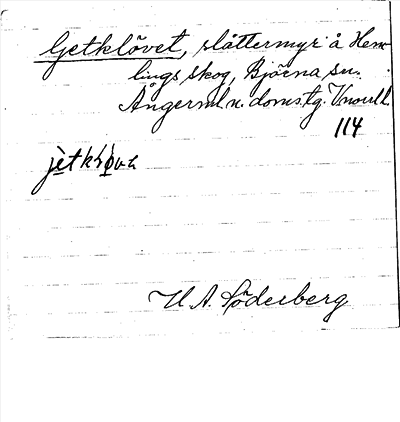 Getklövet, slåttermyr å Hem
lings skog, Björna sn.
Ångerml. n. doms. tg.
114
jètkløva
H A. Söderberg